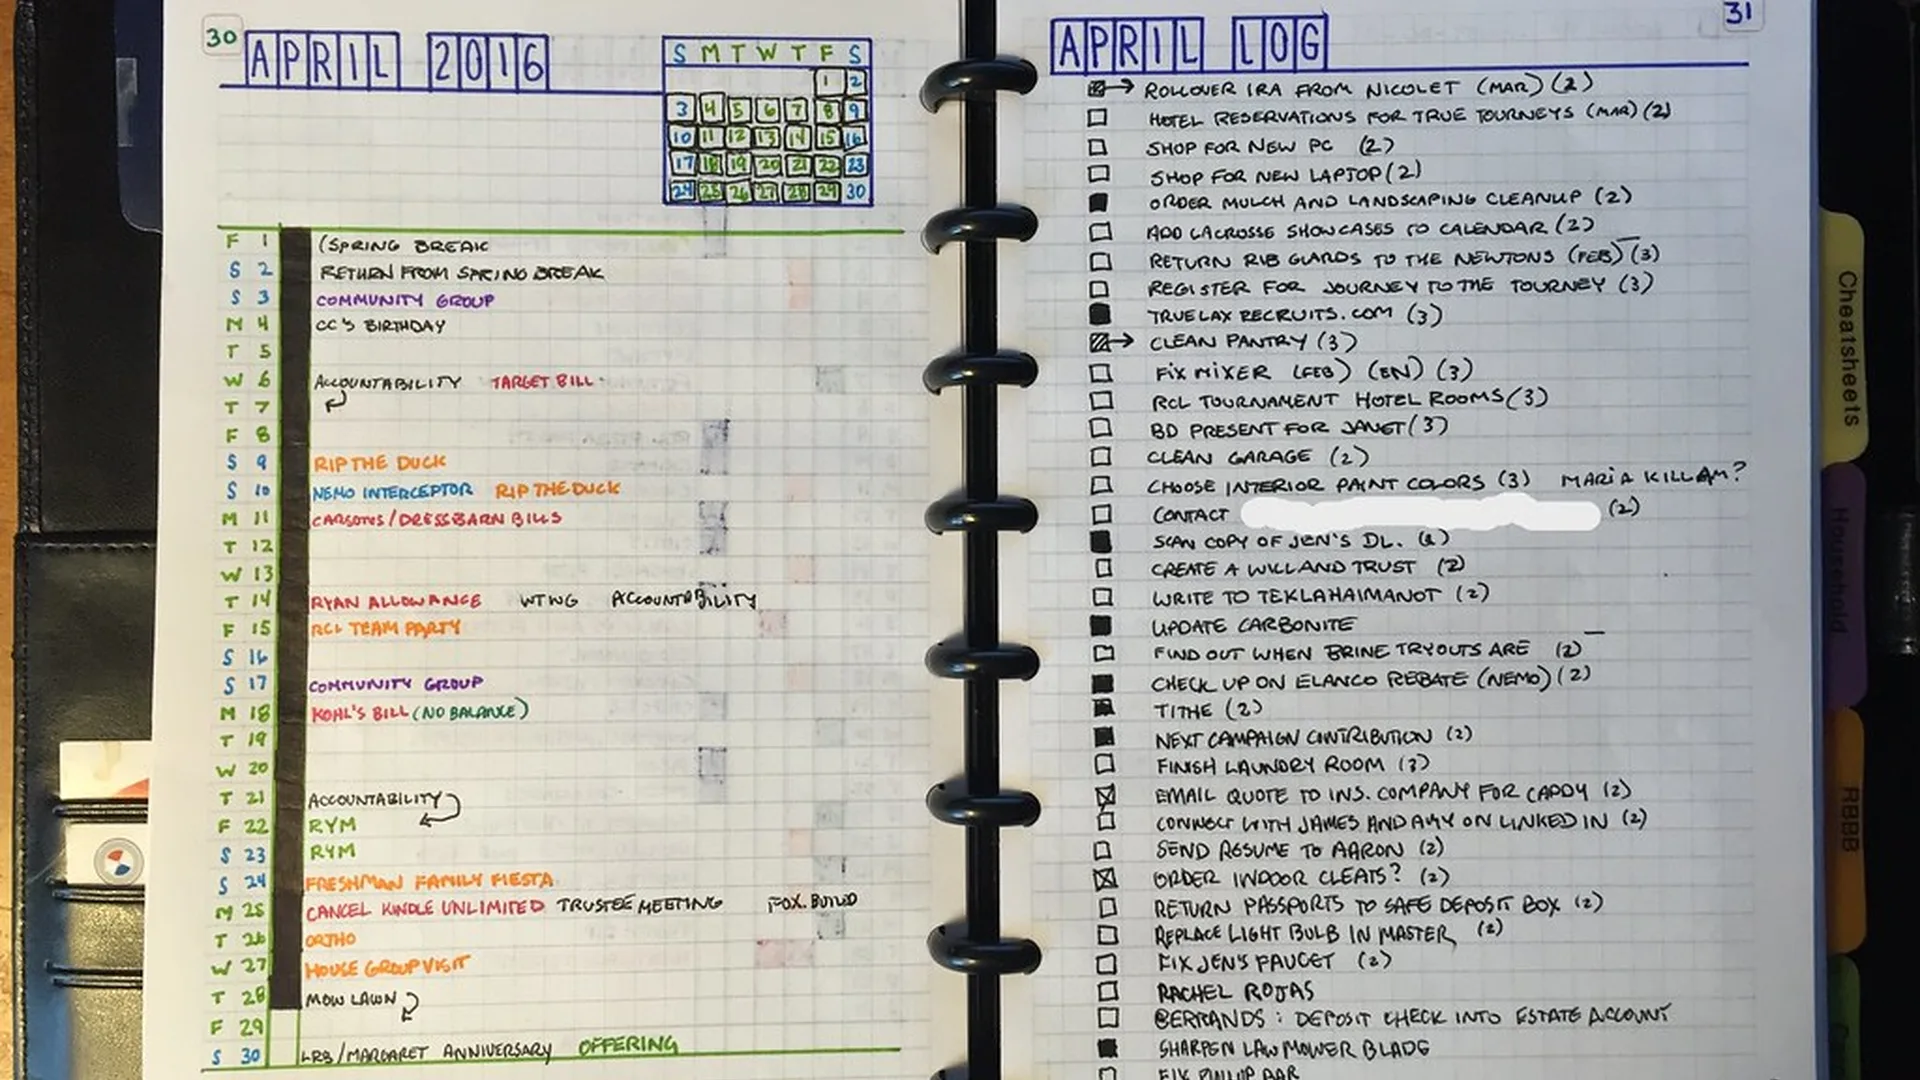 30
APRIL 2016
S M T W T F S
1 2
3 4 5 6 7 8 9
10 11 12 13 14 15 16
17 18 19 20 21 22 23
24 25 26 27 28 29 30
F 1 (SPRING BREAK
S 2 RETURN FROM SPRING BREAK
S 3 COMMUNITY GROUP
M 4 CC'S BIRTHDAY
T 5
W 6 ACCOUNTABILITY TARGET BILL
T 7
F 8
S 9 RIP THE DUCK
S 10 NEMO INTERCEPTOR RIP THE DUCK
M 11 CARSONS/DRESSBARN BILLS
T 12
W 13
T 14 RYAN ALLOWANCE WTWG ACCOUNTABILITY
F 15 RCL TEAM PARTY
S 16
S 17 COMMUNITY GROUP
M 18 KOHL'S BILL (NO BALANCE)
T 19
W 20
T 21 ACCOUNTABILITY
F 22 RYM
S 23 RYM
S 24 FRESHMAN FAMILY FIESTA
M 25 CANCEL KINDLE UNLIMITED TRUSTEE MEETING FOX. BUILD
T 26 ORTHO
W 27 HOUSE GROUP VISIT
T 28 MOW LAWN
F 29
S 30 LRB/MARGARET ANNIVERSARY OFFERING
31
APRIL LOG
ROLLOVER IRA FROM NICOLET (MAR) (2)
HOTEL RESERVATIONS FOR TRUE TOURNEYS (MAR) (2)
SHOP FOR NEW PC (2)
SHOP FOR NEW LAPTOP (2)
ORDER MULCH AND LANDSCAPING CLEANUP (2)
ADD LACROSSE SHOWCASES TO CALENDAR (2)
RETURN RIB GUARDS TO THE NEWTONS (FEB) (3)
REGISTER FOR JOURNEY TO THE TOURNEY (3)
TRUELAX RECRUITS.COM (3)
CLEAN PANTRY (3)
FIX MIXER (FEB) (EN) (3)
RCL TOURNAMENT HOTEL ROOMS (3)
BD PRESENT FOR JANET (3)
CLEAN GARAGE (2)
CHOOSE INTERIOR PAINT COLORS (3) MARIA KILLAM?
CONTACT (2)
SCAN COPY OF JEN'S DL. (2)
CREATE A WILL AND TRUST (2)
WRITE TO TEKLAHAIMANOT (2)
UPDATE CARBONITE
FIND OUT WHEN BRINE TRYOUTS ARE (2)
CHECK UP ON ELANCO REBATE (NEMO) (2)
TITHE (2)
NEXT CAMPAIGN CONTRIBUTION (2)
FINISH LAUNDRY ROOM (3)
EMAIL QUOTE TO INS. COMPANY FOR CADDY (2)
CONNECT WITH JAMES AND AMY ON LINKED IN (2)
SEND RESUME TO AARON (2)
ORDER INDOOR CLEATS? (2)
RETURN PASSPORTS TO SAFE DEPOSIT BOX (2)
REPLACE LIGHT BULB IN MASTER (2)
FIX JEN'S FAUCET (2)
RACHEL ROJAS
BERRANDS: DEPOSIT CHECK INTO ESTATE ACCOUNT
SHARPEN LAWMOWER BLADE
FIX
Cheatsheets
Household
RBBB